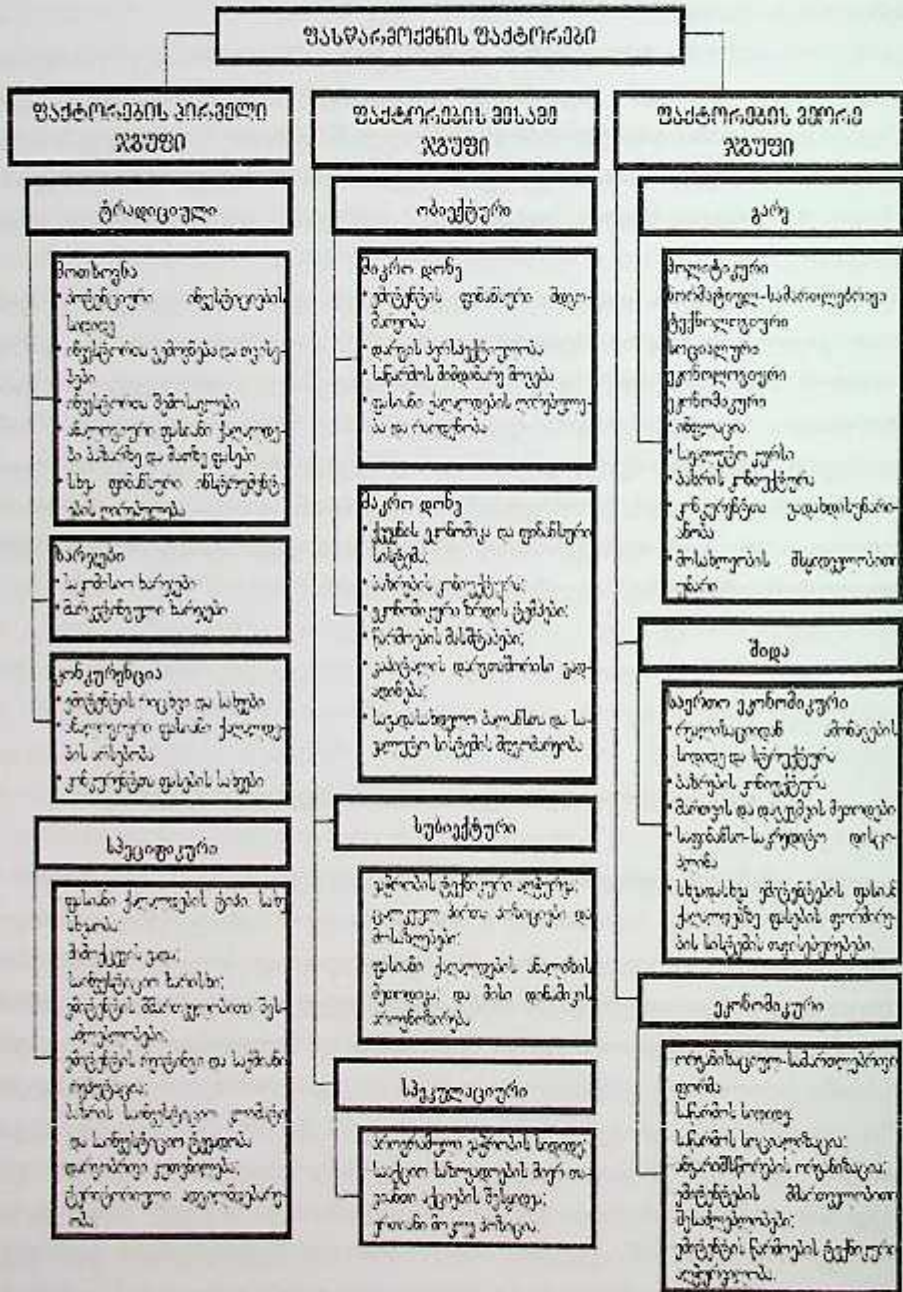 ფასწარმოქმნის ფაქტორები
ფაქტორების პირველი
ჯგუფი
ტრადიციული
მოთხოვნა
• პოტენციური ინვესტიციების
სიდიდე
• ინვესტორთა გემოვნება და თვისე-
ბები
• ინვესტორთა შემოსავლები
• ანალოგიური ფასიანი ქაღალდე-
ბი ბაზარზე და მათზე ფასები
• სხვა ფინანსური ინსტრუმენტ-
ების ღირებულება
ხარჯები
• საკომისიო ხარჯები
• მარკეტინგული ხარჯები
კონკურენცია
• ემიტენტის რიცხვი და სახეები
• ანალოგიური ფასიანი ქაღალდე-
ბის არსებობა
• კონკურენტთა ფასების სახეები
სპეციფიკური
ფასიანი ქაღალდების ტიპი სახე
სხეობა;
მიმოქცევის ვადა;
საინვესტიციო ხარისხი;
ემიტენტის მმართველობითი შეს-
აძლებლობები;
ემიტენტის რეიტინგი და საქმიანი
რეპუტაცია;
ბაზრის საინვესტიციო კლიმატი
და საინვესტიციო ტევადობა
დარგობრივი კუთვნილება;
ტერიტორიული ადგილმდებარე-
ობა
ფაქტორების მესამე
ჯგუფი
ობიექტური
მიკრო დონე
• ემიტენტის ფინანსური მდგო-
მარეობა
• დარგის პერსპექტიულობა
• საწარმოს მიმდინარე მოგება
• ფასიანი ქაღალდების ღირებულე-
ბა და რაოდენობა
მაკრო დონე
• ქვეყნის ეკონომიკა და ფინანსური
სისტემა
• ბაზრების კონიექტურა;
• ეკონომიკური ზრდის ტემპები;
• წარმოების მასშტაბები;
• კაპიტალის დარგთაშორისი გად-
ადინება;
• საგადასახდელო ბალანსთა და სა-
ვლუტო სისტემის მდგომარეობა
სუბიექტური
ვაჭრობის ტექნიკური აღჭურვა;
ცალკეულ პირთა პოზიციები და
მოსაზრებები;
ფასიანი ქაღალდების ანალიზის
მეთოდიკა; და მისი დინამიკის
პროგნოზირება
სპეკულაციური
პროგრამული ვაჭრობის სიდიდე;
სააქციო საზოგადოების მიერ თა-
ვიანთი აქციების შესყიდვა;
ერთიანი მოკლე პოზიცია.
ფაქტორების მეორე
ჯგუფი
გარე
პოლიტიკური
ნორმატიულ-სამართლებრივი
ტექნოლოგიური
სოციალური
ეკოლოგიური
ეკონომიკური
• ინფლაცია
• სავალუტო კურსი
• ბაზრის კონიექტურა
• კონკურენტთა გადახდისუნარი-
ანობა
• მოსახლეობის მსყიდველობითი
უნარი
შიდა
საერთო ეკონომიკური
• რეალიზაციიდან ამონაგების
სიდიდე და სტრუქტურა
• ბაზრების კონიექტურა
• მართვის და დაგეგმვის მეთოდები
• საფინანსო-საკრედიტო დისცი-
პლინა
• სხვადასხვა ემიტენტების ფასიან
ქაღალდებზე ფასების ფორმირე-
ბის სისტემის თავისებურებები.
ეკონომიკური
ორგანიზაციულ-სამართლებრივი
ფორმა
საწარმოს სიდიდე
საწარმოს სოციალიზაცია;
ანგარიშსწორების ორგანიზაცია;
ემიტენტების მმართველობითი
შესაძლებლობები;
ემიტენტის წარმოების ტექნიკური
აღჭურვილობა.